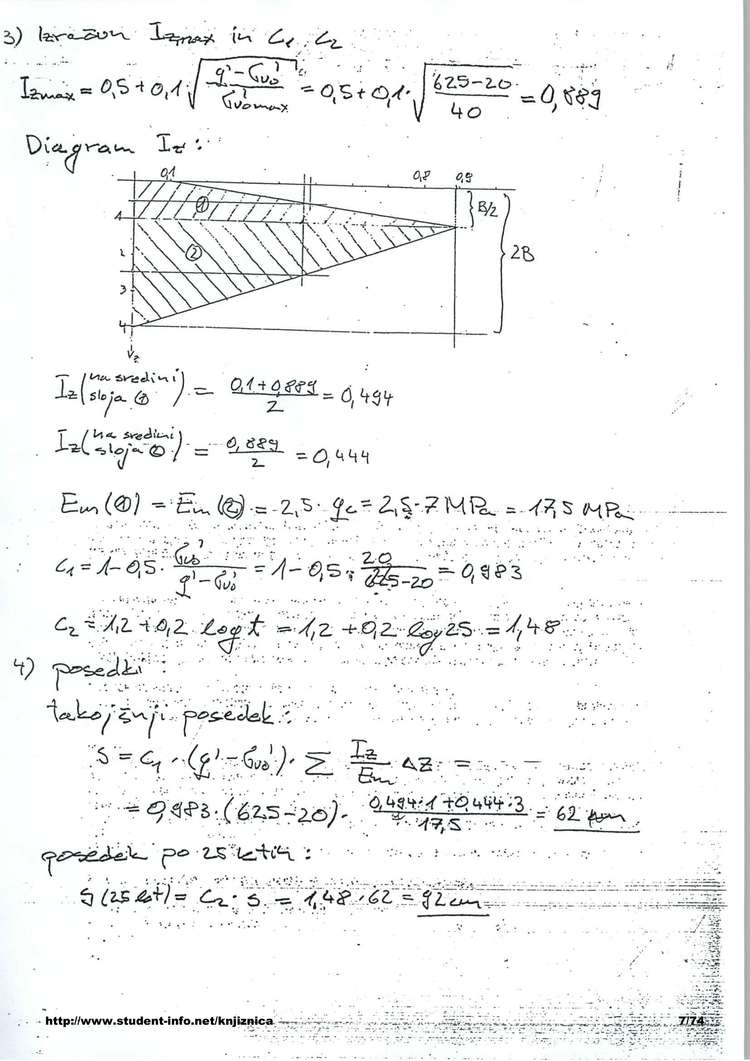 3) Izračun Izmax in C1, C2
Izmax = 0,5 + 0,1 √((q' - σv0')/σ'v0max) = 0,5 + 0,1 · √((625-20)/40) = 0,889
Diagram Iz :
0,1 0,8 0,9
① B/2
1
2 ② 2B
3
4
z
Iz (na sredini sloja ①) = (0,1 + 0,889)/2 = 0,494
Iz (na sredini sloja ②) = 0,889/2 = 0,444
Em (①) = Em (②) = 2,5 · qc = 2,5 · 7 MPa = 17,5 MPa
C1 = 1 - 0,5 · σv0'/(q' - σv0') = 1 - 0,5 · 20/(625-20) = 0,983
C2 = 1,2 + 0,2 log t = 1,2 + 0,2 log 25 = 1,48
4) posedki :
takojšnji posedek :
s = C1 · (q' - σv0') · Σ Iz/Em Δz =
= 0,983 · (625-20) · (0,494·1 + 0,444·3)/17,5 = 62
posedek po 25 letih :
s (25 let) = C2 · s = 1,48 · 62 = 92 cm
http://www.student-info.net/knjiznica
7/74